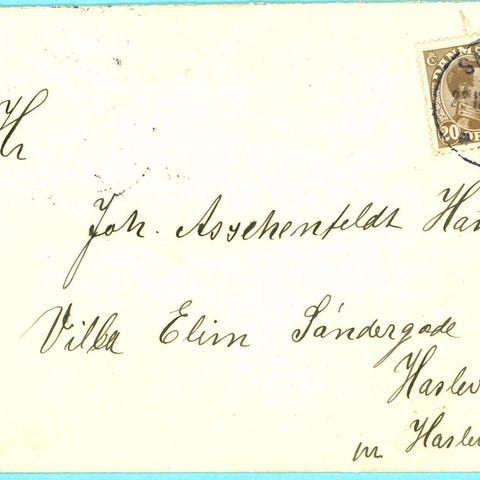 Hr
Joh. Asschenfeldt Han
Villa Elim Søndergade
Haslev
pr Haslev
DANMARK
20